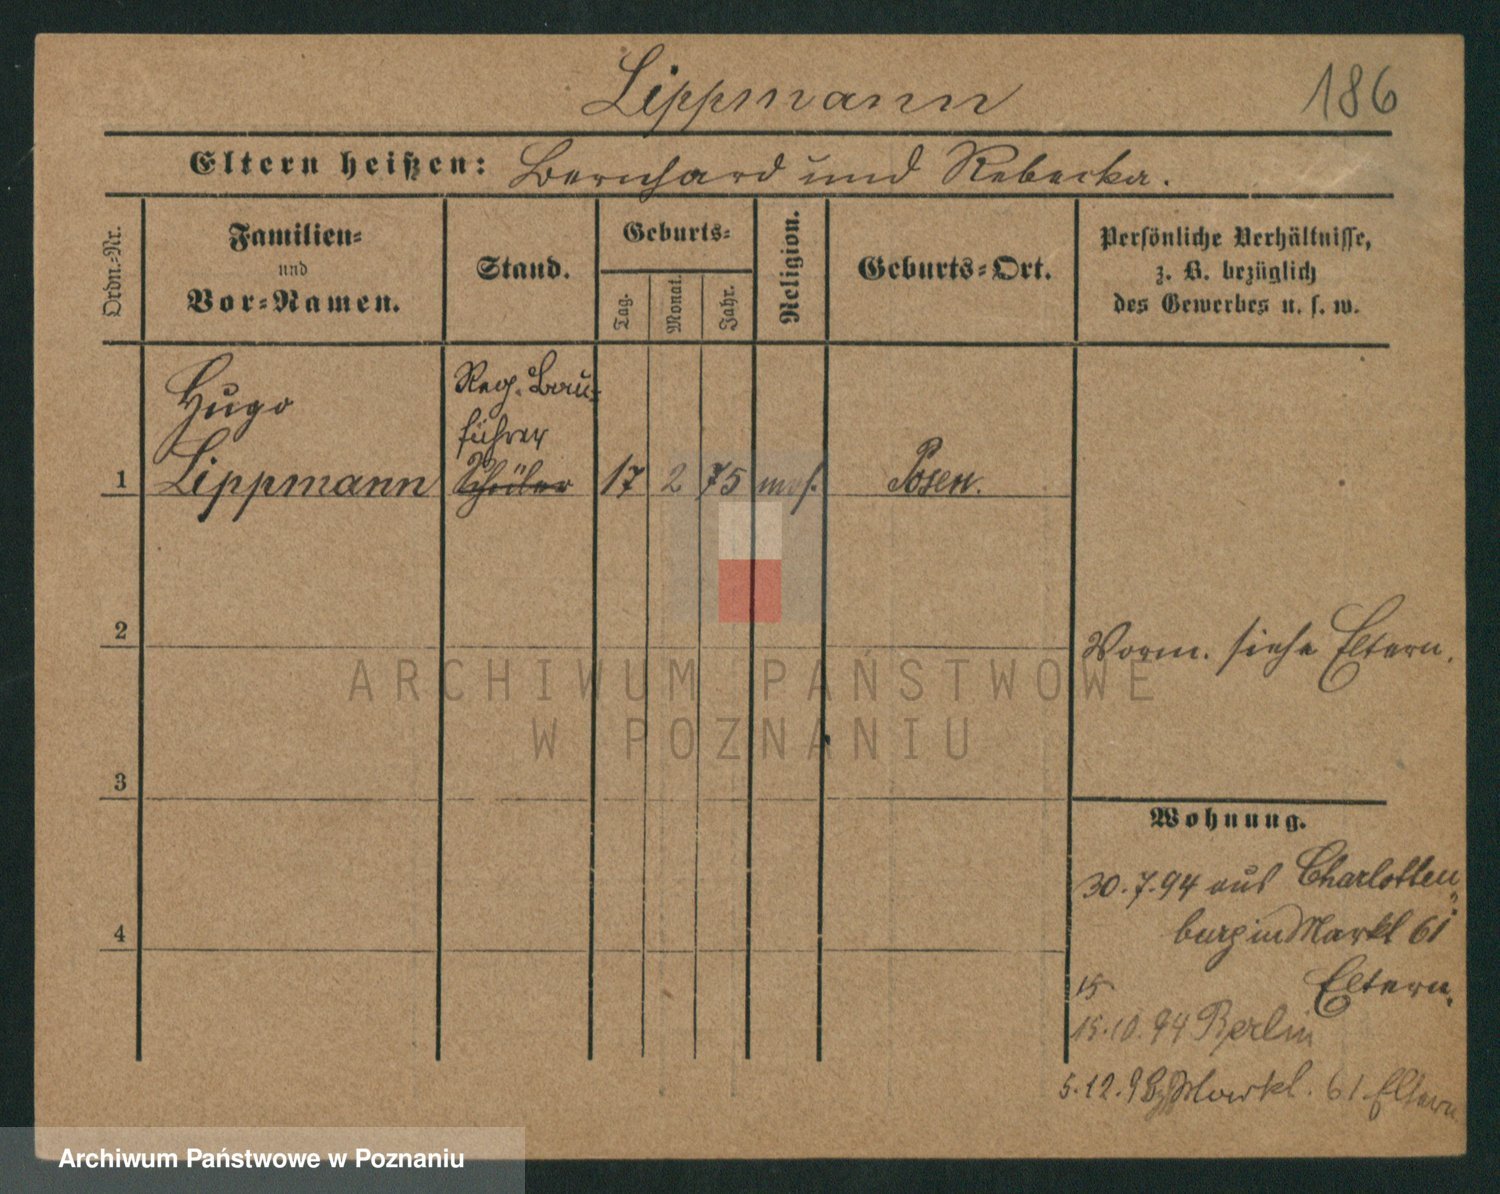 Lippmann
186
Eltern heißen: Bernhard und Rebecka.
Ordn.-Nr.
Familien-
und
Vor-Namen.
Stand.
Geburts-
Tag.
Monat.
Jahr.
Religion.
Geburts-Ort.
Persönliche Verhältnisse,
z. B. bezüglich
des Gewerbes u. s. w.
Hugo
Reg. Bau-
führer
1 Lippmann Schüler 17 2 75 mos. Posen.
2
Vorm. siehe Eltern.
3
Wohnung.
30.7.94 aus Charlotten-
burg in Markt 61
4
15 Eltern.
15.10.94 Berlin
5.12.98 Markt. 61 Eltern
ARCHIWUM PAŃSTWOWE
W POZNANIU
Archiwum Państwowe w Poznaniu